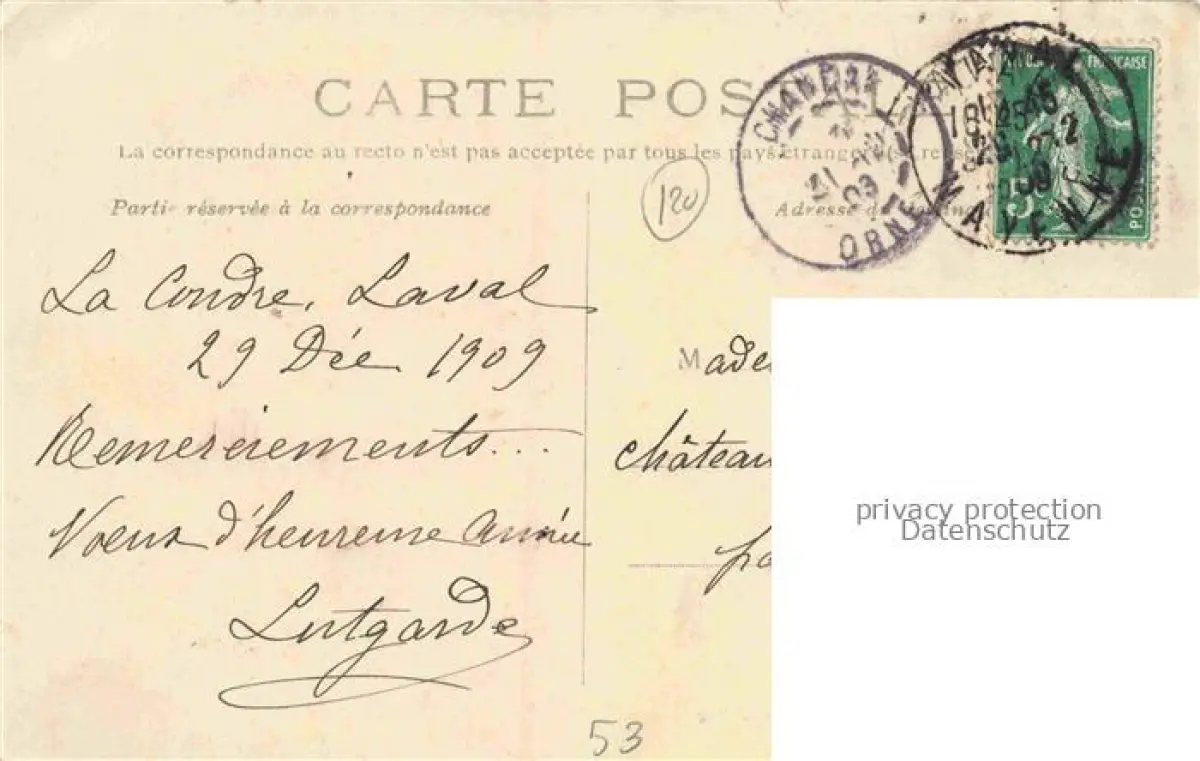 CARTE POSTALE
La correspondance au recto n'est pas acceptée par tous les pays étrangers
Partie réservée à la correspondance
Adresse du
120
CHANDAI
31
09
ORNE
18 45
MAYENNE
FRANÇAISE
POSTES
5c
La Coudre, Laval
29 Déc 1909
Remerciements...
Voeux d'heureuse année
Lutgarde
Made
château
pa
53
privacy protection
Datenschutz